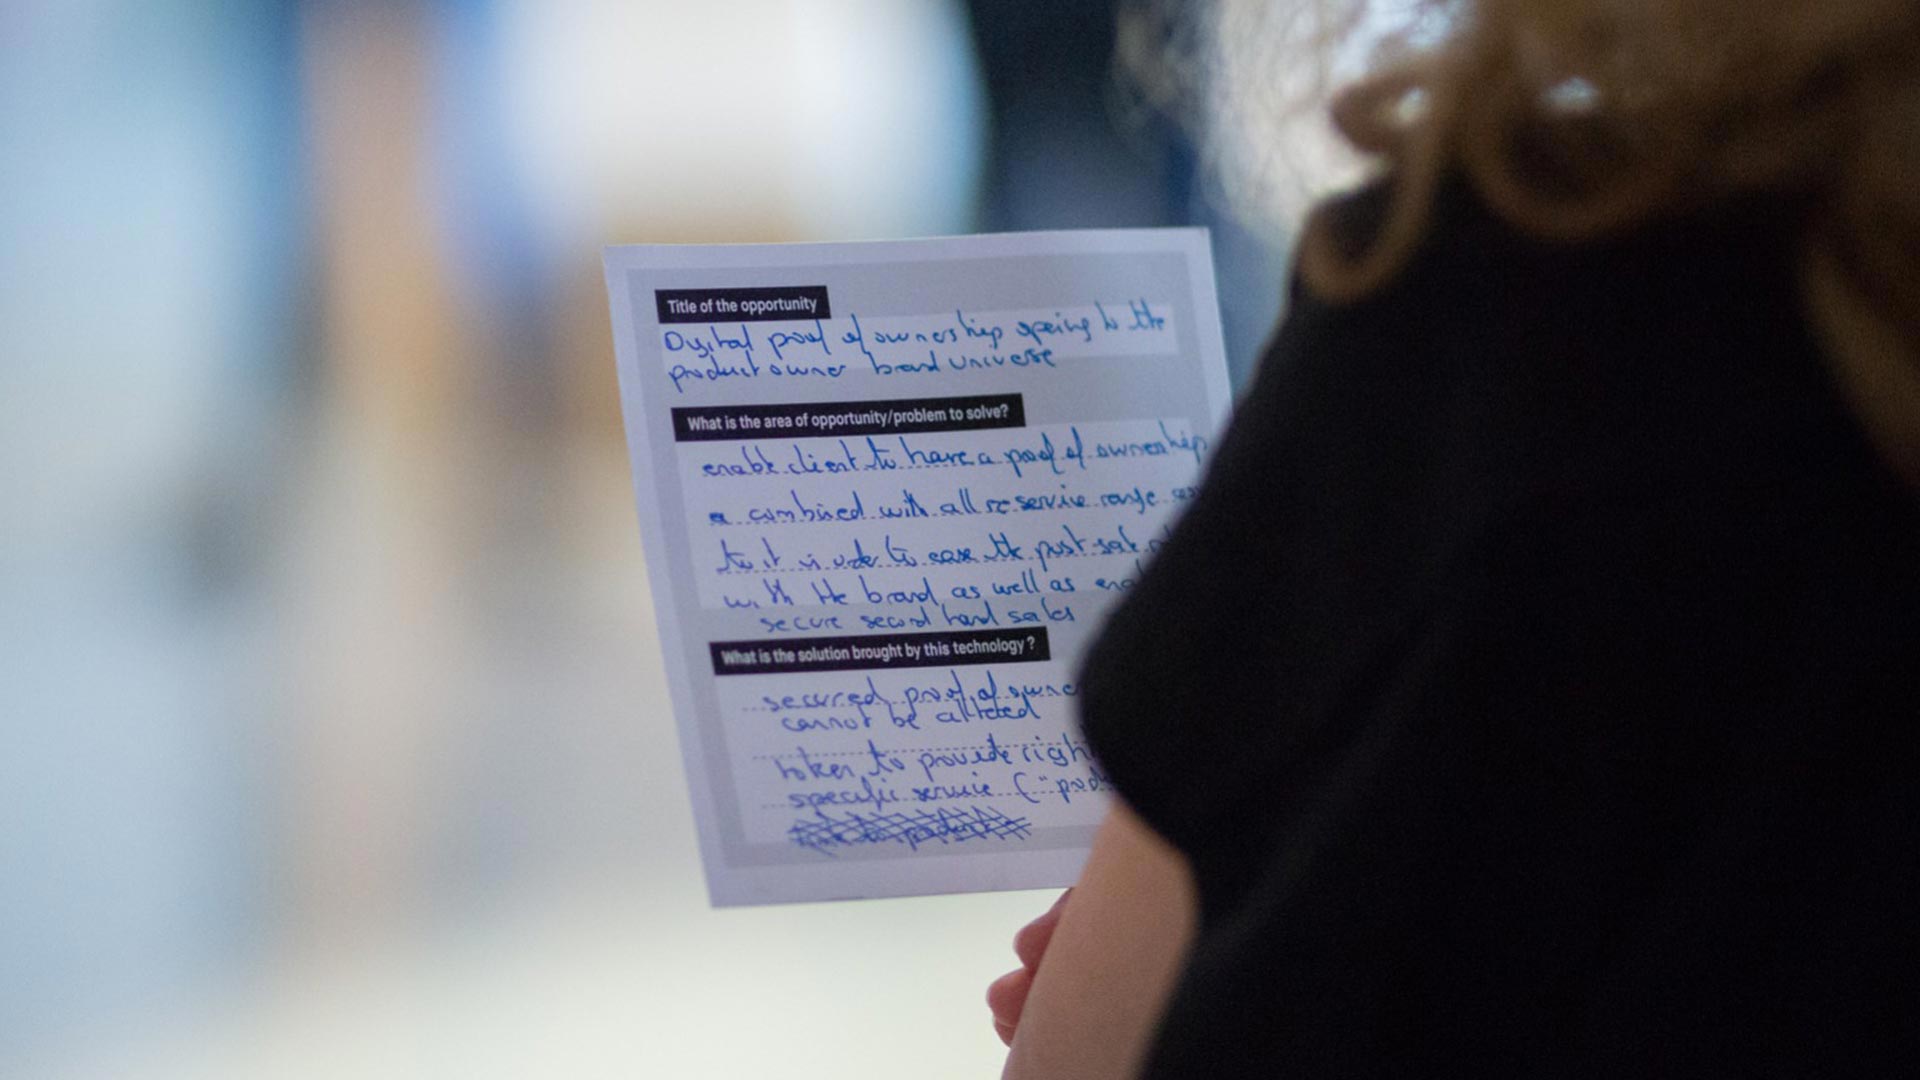 Title of the opportunity
Digital proof of ownership opening to the
product owner brand universe
What is the area of opportunity/problem to solve?
enable client to have a proof of ownership
combined with all service range
to it in order to ease the post sale
with the brand as well as
secure second hand sales
What is the solution brought by this technology ?
secured proof of
cannot be altered
token to provide
specific service (